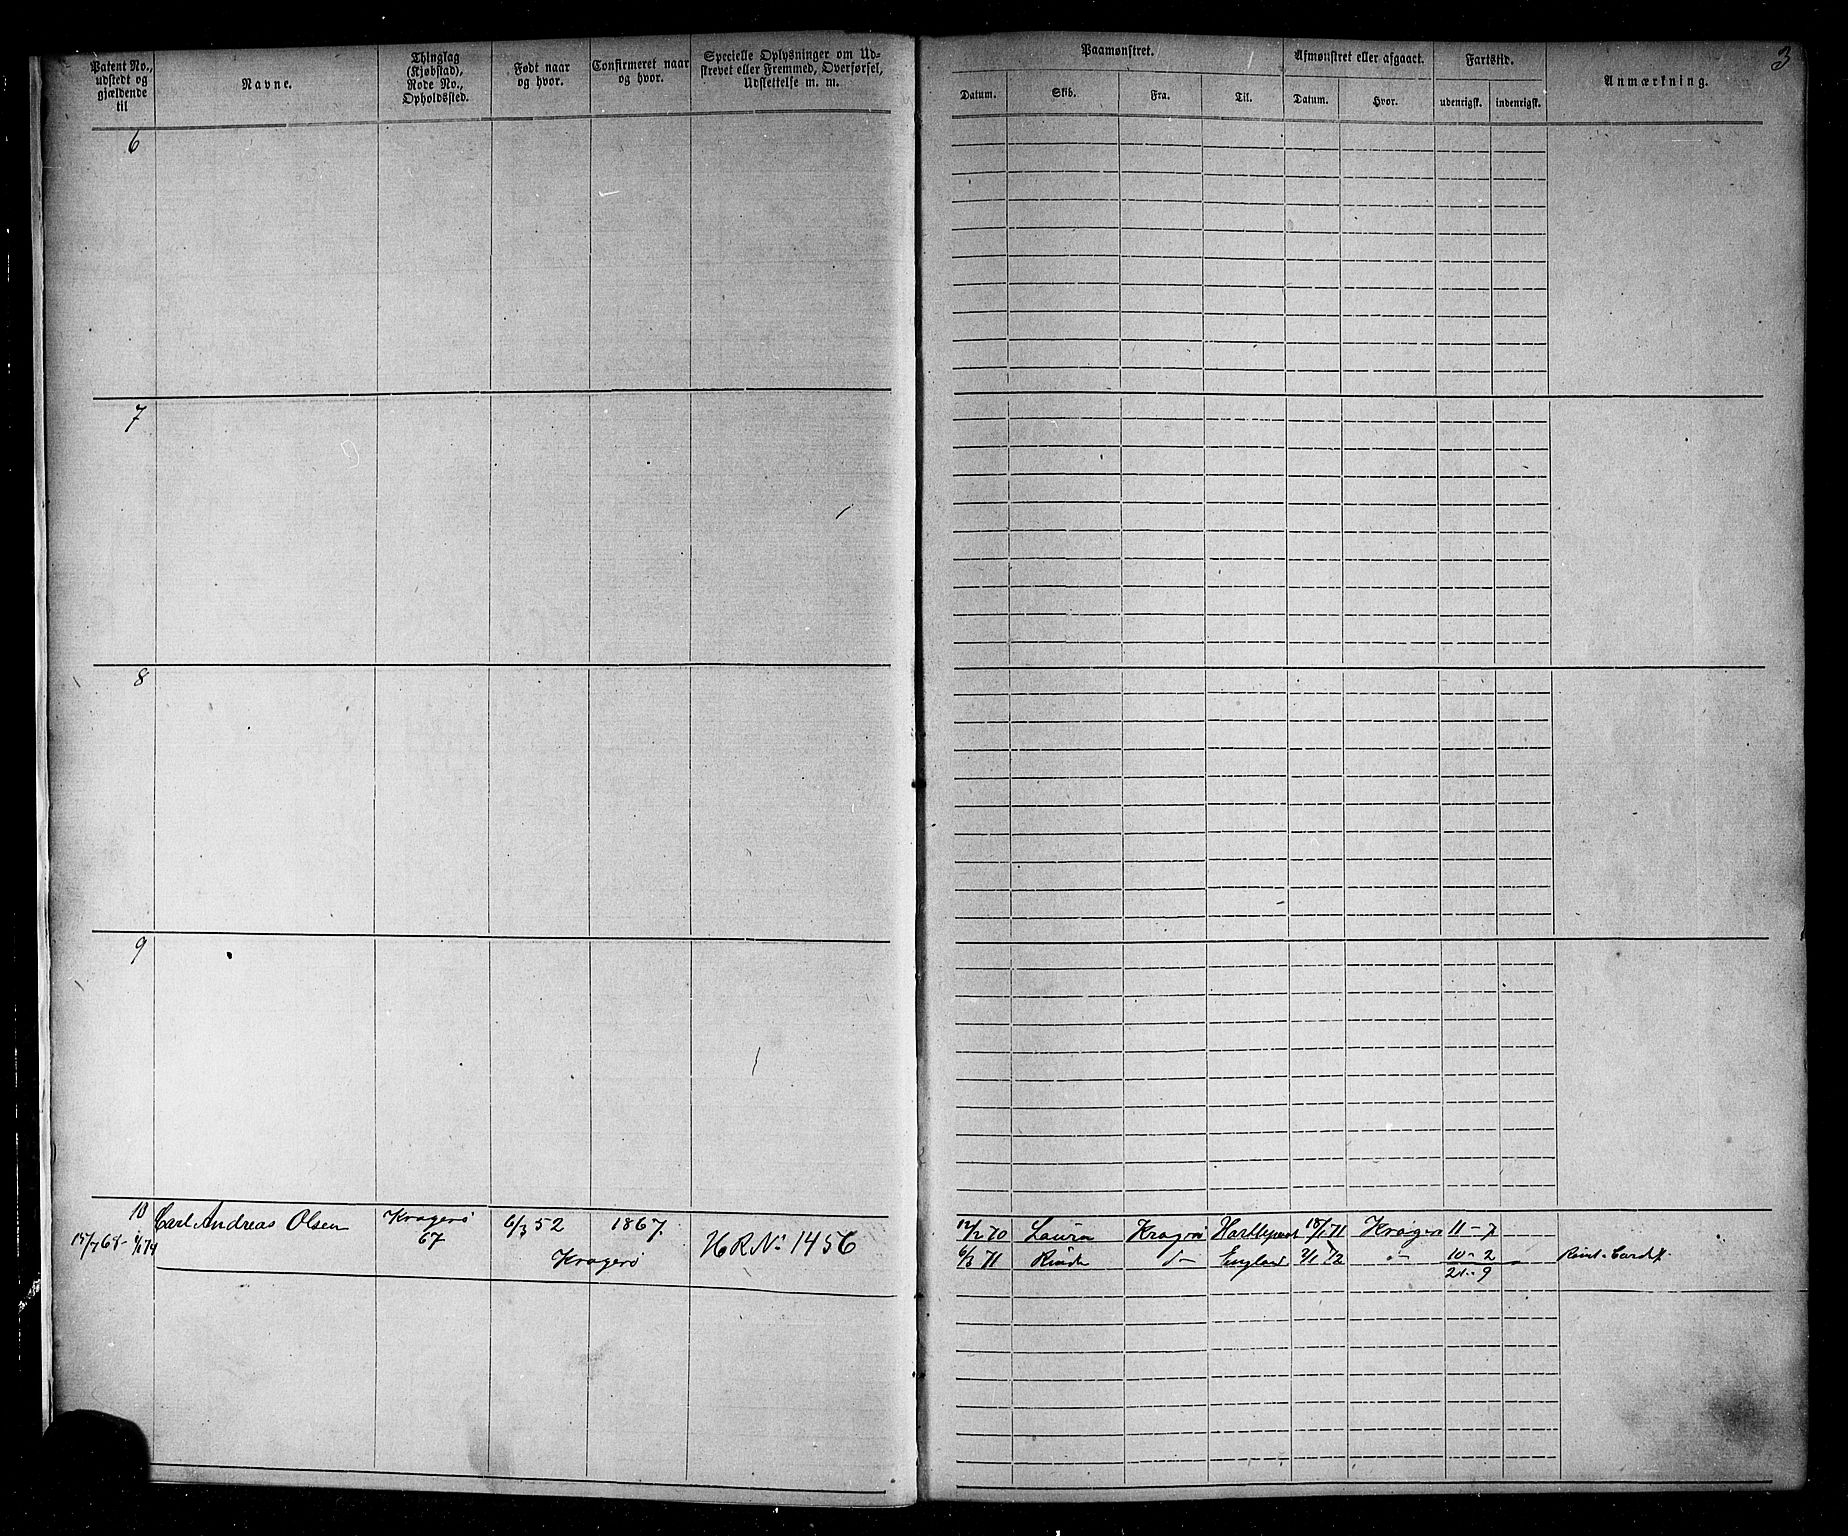 Patent No., udstedt og gjældende til
Navne.
Thinglag (Kjøbstad), Rode No., Opholdssted.
Født naar og hvor.
Confirmeret naar og hvor.
Specielle Oplysninger om Udskrevet eller Fremmed, Overførsel, Udslettelse m. m.
6
7
8
9
10
15/7 68 - 1/1 74
Carl Andreas Olsen
Kragerø
67
6/3 52
1867.
Kragerø
H R No 1456
3
Paamønstret.
Afmønstret eller afgaaet.
Fartstid.
Anmærkning.
Datum.
Skib.
Fra.
Til.
Datum.
Hvor.
udenrigsk.
indenrigsk.
12/2 70 Laura Kragerø Hartlepool 18/1 71 Kragerø 11 - 7
6/3 71 England 2/1 72 10 - 2
21 - 9